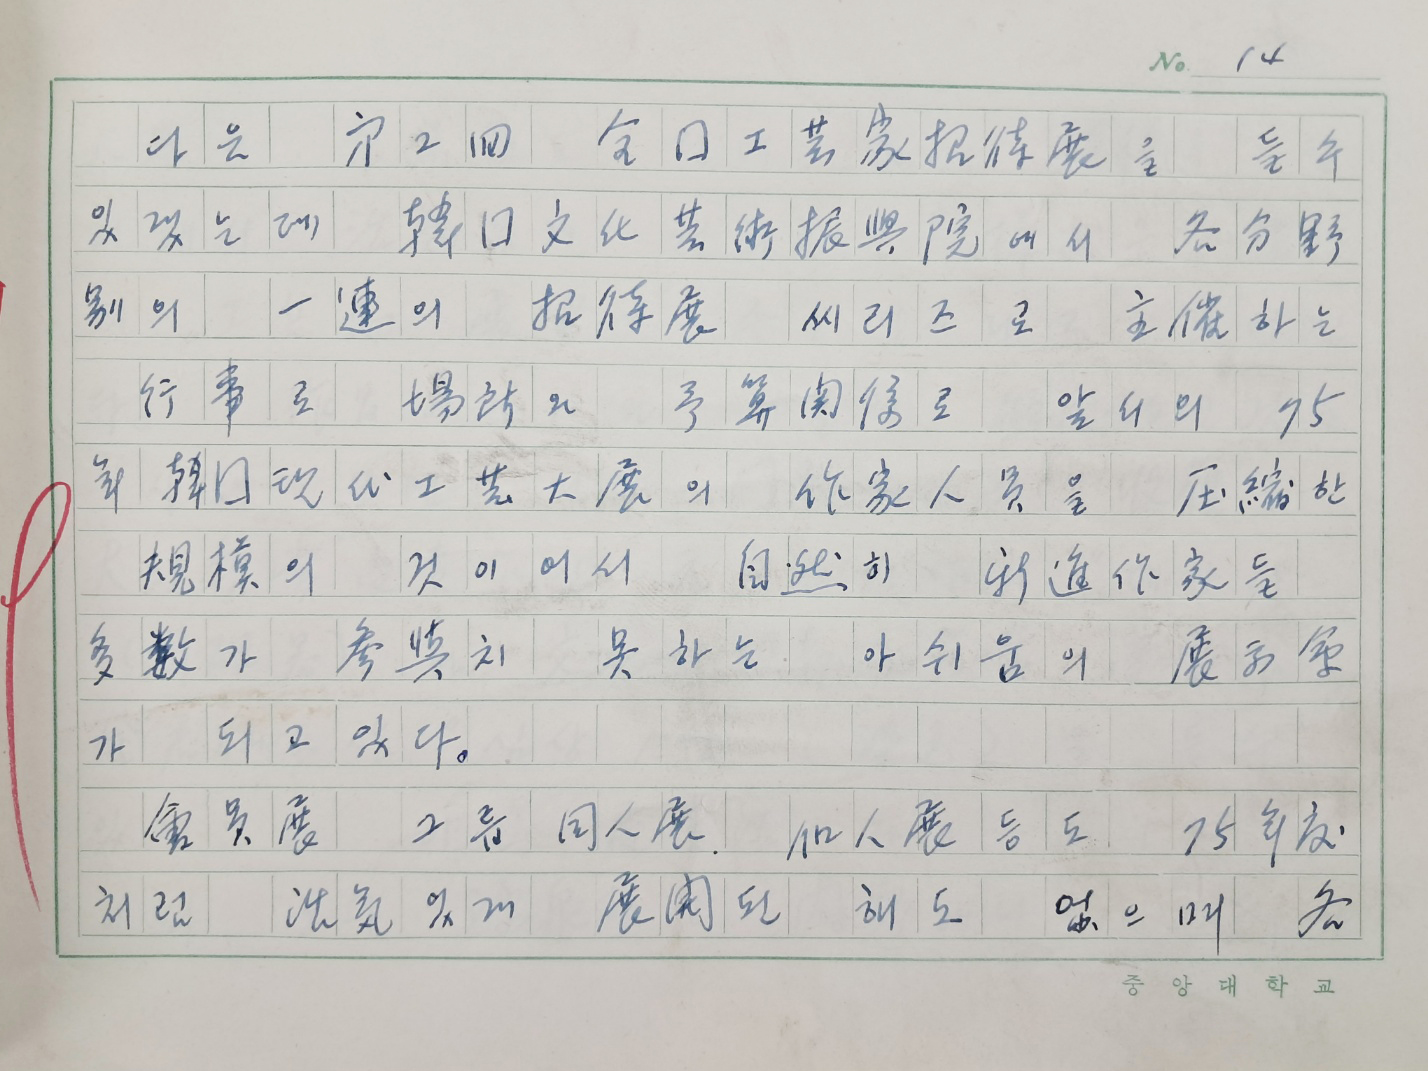 No. 14
다은 第2回 全日工芸家招待展을 들수
있겠는데 韓日文化芸術振興院에서 各分野
別의 一連의 招待展 씨리즈로 主催하는
行事로 場所와 予算関係로 앞서의 75
年 韓日現代工芸大展의 作家人員을 圧縮한
規模의 것이어서 自然히 新進作家들
多数가 参与치 못하는 아쉬움의 展示会
가 되고 있다。
會員展 그룹 同人展. 個人展 등도 75年度
처럼 活気있게 展開된 해도 없으며 各
중앙대학교